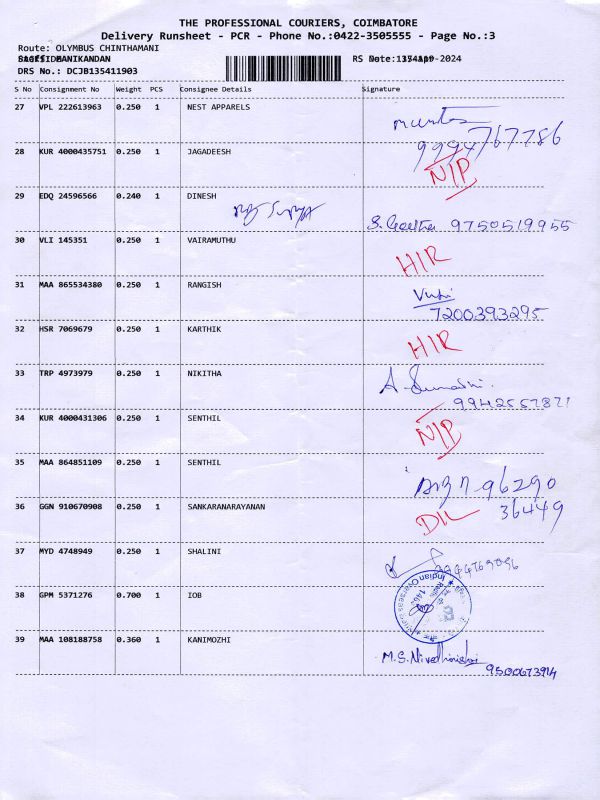 THE PROFESSIONAL COURIERS, COIMBATORE
Delivery Runsheet - PCR - Phone No.:0422-3505555 - Page No.:3
Route: OLYMBUS CHINTHAMANI
MANIKANDAN
-2024
DRS No.: DCJB135411903
S No Consignment No Weight PCS Consignee Details Signature
27 VPL 222613963 0.250 1 NEST APPARELS
9994767786
28 KUR 4000435751 0.250 1 JAGADEESH NIP
29 EDQ 24596566 0.240 1 DINESH
S. Geetha 9750519955
30 VLI 145351 0.250 1 VAIRAMUTHU HIR
31 MAA 865534380 0.250 1 RANGISH
7200393295
32 HSR 7069679 0.250 1 KARTHIK HIR
33 TRP 4973979 0.250 1 NIKITHA
34 KUR 4000431306 0.250 1 SENTHIL NIP
35 MAA 864851109 0.250 1 SENTHIL
96290
36 GGN 910670908 0.250 1 SANKARANARAYANAN DIL 36449
37 MYD 4748949 0.250 1 SHALINI
38 GPM 5371276 0.700 1 IOB
Indian Overseas
39 MAA 108188758 0.360 1 KANIMOZHI
9500673914